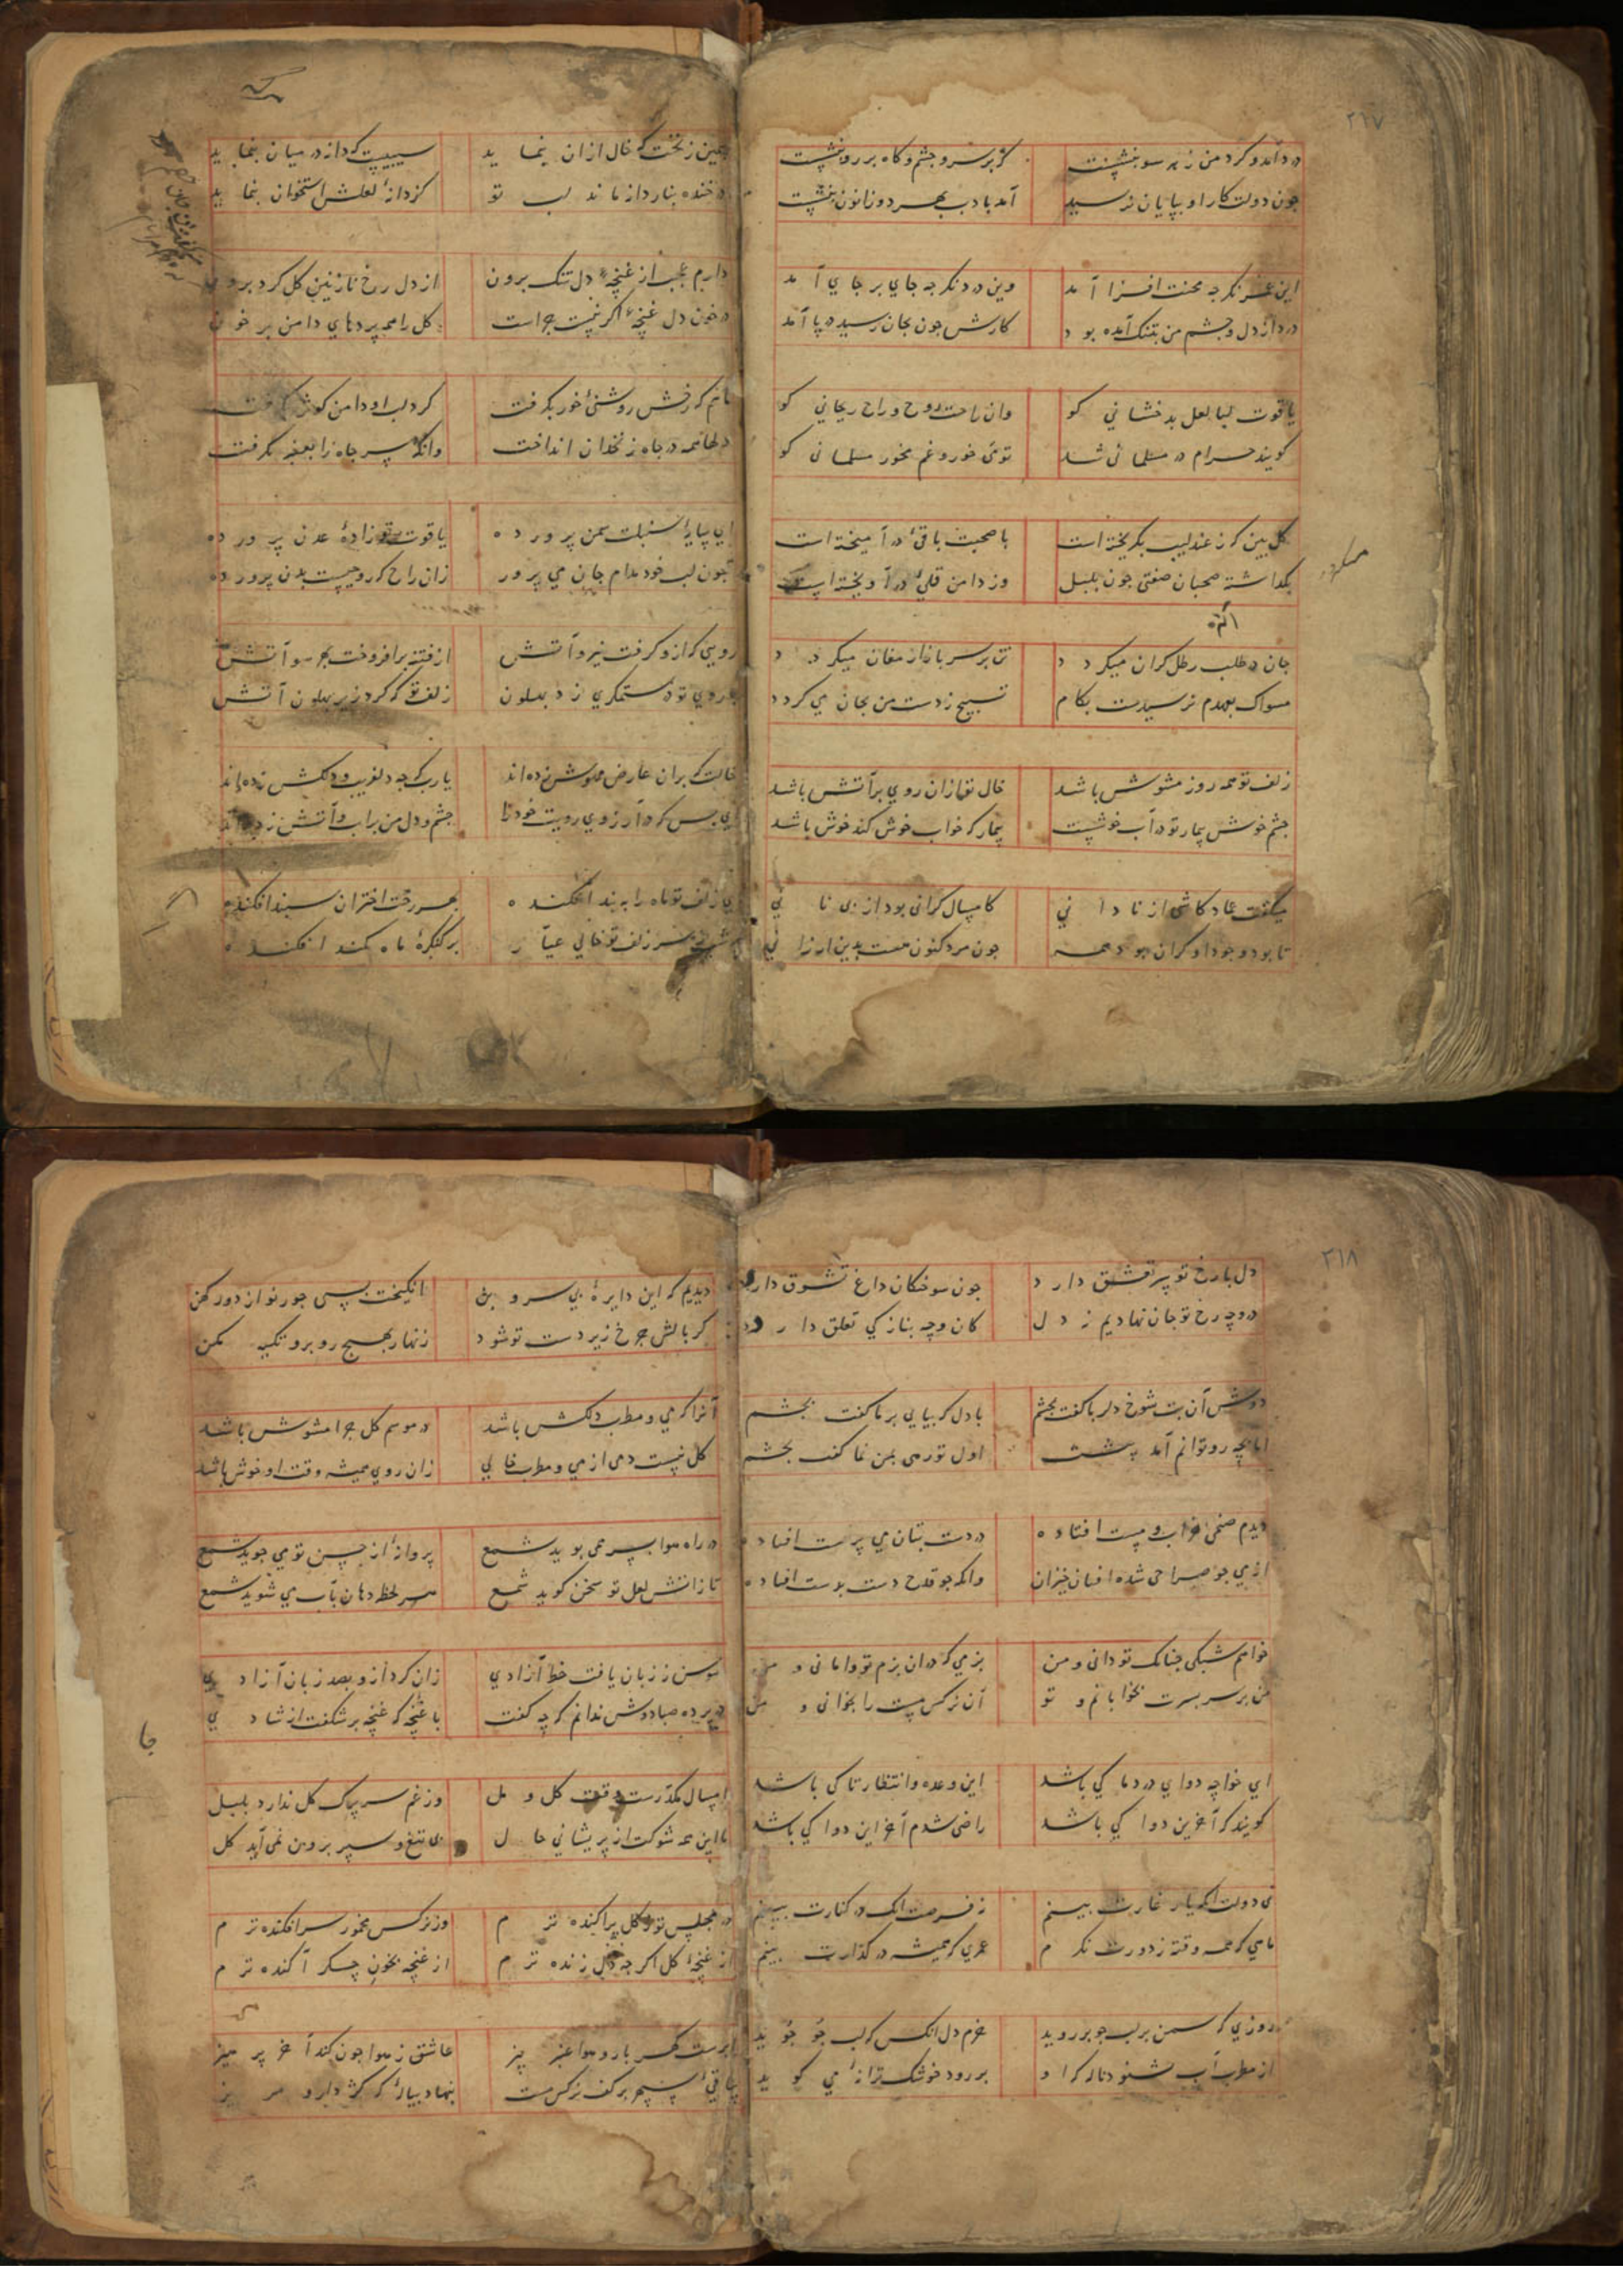 ۲۱۷
درد آمد و کرد من ز هر سو بنشست
کز بر سر و چشم و کاه بر رو بنشست
چون دولت کار او بپایان نرسید
آمد بادب بهر دو زانون بنشست
این غم نکر چه محنت افزا آمد
وین درد نکر چه جای بر جای آمد
درد از دل و چشم من بتنک آمده بود
کارش چون بجان رسید در پا آمد
یاقوت لبا لعل بدخشانی کو
وان راحت روح و راح ریحانی کو
کویند حرام در مسلمانی شد
تو می خور و غم مخور مسلمانی کو
کل بین که ز عندلیب بکریخته است
با صحبت باقی در آمیخته است
بکداشته صحبان صفتی چون بلبل
وز دامن قلی در آویخته است
جان در طلب رطل کران میکردد
تن بر سر بازار مغان میکردد
مسواک بعهدم نرسیدست بکام
تسبیح ز دست من بجان می کردد
زلف تو همه روز مشوش باشد
خال تو از ان روی بر آتش باشد
چشم خوش بیمار تو در آب خوشیست
بیمار که خواب خوش کند خوش باشد
میکفت عماد کاشی از نادانی
کامسال کرانی بود از بی نانی
تا بود وجود او کران بود همه
چون مرد کنون هست بدین ارزانی
سیمین زنخت که خال از ان بنماید
سیبیست که دانه در میان بنماید
در خنده بنار دانه ماند لب تو
کز دانهٔ لعلش استخوان بنماید
دارم عجب از غنچهٔ دل تنک برون
از دل رخ نازنین کل کرد برون
در خون دل غنچه اکر نیست چراست
کل را همه پردهای دامن پر خون
ماهم که رخش روشنی خور بکرفت
کرد لب او دامن کوثر بکرفت
دلها همه در چاه زنخدان انداخت
وانکه سر چاه را بعنبر بکرفت
ای سایهٔ سنبلت سمن پرورده
یاقوت تو زادهٔ عدن پرورده
همچون لب خود مدام جان می پرور
زان راح که روحیست بدن پرورده
رویی که ازو کرفت نیرو آتش
از فتنه برافروخت بهر سو آتش
در روی تو در ستمکری زد پهلون
زلف تو که کرد زیر پهلون آتش
خالت که بران عارض مهوش زده اند
یارب که چه دلفریب و دلکش زده اند
ای بس که در آرزوی رویت خود را
چشم و دل من بر آب و آتش زده اند
ای زلف تو ماه را به بند افکنده
بهر رخت اختران سپند افکنده
سر زلف تو خالی عیار
بر کنکرهٔ ماه کمند افکنده
۲۱۸
دل بارخ تو سر تعشق دارد
چون سوختکان داغ تشوق دارد
در وجه رخ تو جان نهادیم ز دل
کان وجه بنازکی تعلق دارد
دوش آن بت شوخ دلربا کفت بچشم
با دل که بیایی بر ما کفت بچشم
اما بچه رو توانم آمد پیشت
اول تو رهی بمن نما کفت بچشم
دیدم صنمی خراب و مست افتاده
در دست بتان می پرست افتاده
از می چو صراحی شده افتان خیزان
وانکه چو قدح دست بدست افتاده
خواهم شبکی چنانک تو دانی و من
بزمی که دران بزم تو وامانی و من
من بر سر بسترت بخوابانم و تو
آن نرکس مست را بخوابانی و من
ای خواجه دوای درد ما کی باشد
این وعده و انتظار تا کی باشد
کویند که آخرین دوا کی باشد
راضی شدم آخر این دوا کی باشد
نی دولت آنکه یار غارت بینم
نه فرصت آنک در کنارت بینم
ماهی که همه وقته ز دورت نکرم
عمری که همیشه در کذارت بینم
روزی که سمن بر لب جو بر روید
خرم دل آنکس که لب جو جوید
از مطرب آب بشنود ناله کر او
بر رود خوشک ترانهٔ می کوید
دیدیم که این دایرهٔ بی سر و بن
انکیخت بسی جور نو از دور کهن
کر بالش چرخ زیر دست تو شود
زنهار بهیچ رو برو تکیه مکن
آنرا که می و مطرب دلکش باشد
در موسم کل چرا مشوش باشد
کل نیست دمی از می و مطرب خالی
زان روی همیشه وقت او خوش باشد
در راه هوا بسر همی پوید شمع
پروانه از حسن تو می جوید شمع
تا زاتش لعل تو سخن کوید شمع
هر لحظه دهان بآب می شوید شمع
سوسن ز زبان یافت خط آزادی
زان کرد ازو بصد زبان آزادی
در پرده صبا دوش ندانم که چه کفت
با غنچه که غنچه بر شکفت از شادی
امسال مکدرست وقت کل و مل
وز غم سر برک کل ندارد بلبل
با این همه شوکت از پریشانی حال
بی تیغ و سپر برون نمی آید کل
در مجلس تو ز کل پراکنده ترم
وز نرکس مخمور سرافکنده ترم
از غنچهٔ کل اکر چه دل زنده ترم
از غنچه بخون جکر آکنده ترم
ابرست کهر بار و هوا عنبر بیز
عاشق ز هوا چون کند آخر پرهیز
ساقی سپهر بر کف نرکس مست
بنهاد پیاله که کژ دار و مریز
جا